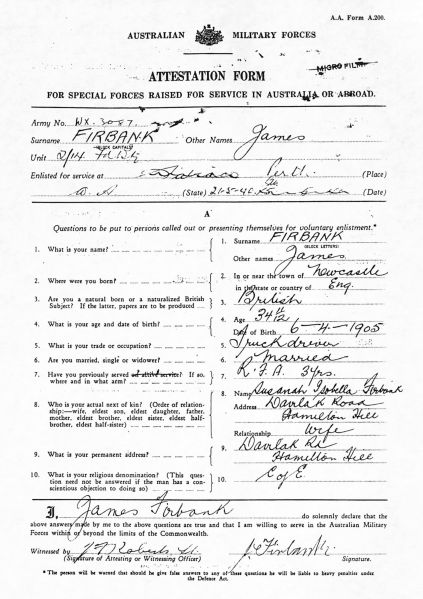 A.A. Form A.200.
AUSTRALIAN MILITARY FORCES
MICRO FILM
ATTESTATION FORM
FOR SPECIAL FORCES RAISED FOR SERVICE IN AUSTRALIA OR ABROAD.
Army No. WX. 3087.
Surname FIRBANK Other Names James
(BLOCK CAPITALS)
Unit 2/14
Enlisted for service at Perth (Place)
W.A (State) 21-5-40 (Date)
A
Questions to be put to persons called out or presenting themselves for voluntary enlistment.*
1. What is your name? 1. Surname FIRBANK
(BLOCK LETTERS)
Other names James
2. Where were you born? 2. In or near the town of Newcastle
in the state or country of Eng.
3. Are you a natural born or a naturalized British Subject? If the latter, papers are to be produced 3. British
4. What is your age and date of birth? 4. Age 34
Date of Birth 6-4-1905
5. What is your trade or occupation? 5. Truck driver
6. Are you married, single or widower? 6. Married
7. Have you previously served on active service? If so, where and in what arm? 7. R.F.A. 3 yrs.
8. Who is your actual next of kin? (Order of relationship:—wife, eldest son, eldest daughter, father, mother, eldest brother, eldest sister, eldest half-brother, eldest half-sister) 8. Name Susanah Isobella Firbank
Address Davilak Road
Hamilton Hill
Relationship Wife
9. What is your permanent address? 9. Davilak Rd
Hamilton Hill
10. What is your religious denomination? (This question need not be answered if the man has a conscientious objection to doing so) 10. C of E
I, James Firbank do solemnly declare that the
above answers made by me to the above questions are true and that I am willing to serve in the Australian Military
Forces within or beyond the limits of the Commonwealth.
Witnessed by J Roberts, Lt. J. Firbank
(Signature of Attesting or Witnessing Officer) Signature.
* The person will be warned that should he give false answers to any of these questions he will be liable to heavy penalties under
the Defence Act.